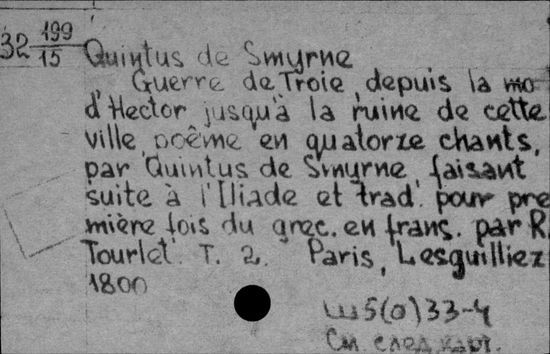 32 199/15
Quintus de Smyrne
Guerre de Troie, depuis la mo
d'Hector jusqu'à la ruine de cette
ville, poême en quatorze chants,
par Quintus de Smyrne, faisant
suite à l'Iliade et trad. pour pre
mière fois du grec. en frans. par R.
Tourlet. T. 2. Paris, Lesguilliez
1800
ш5(0)33-4
См. след. карт.